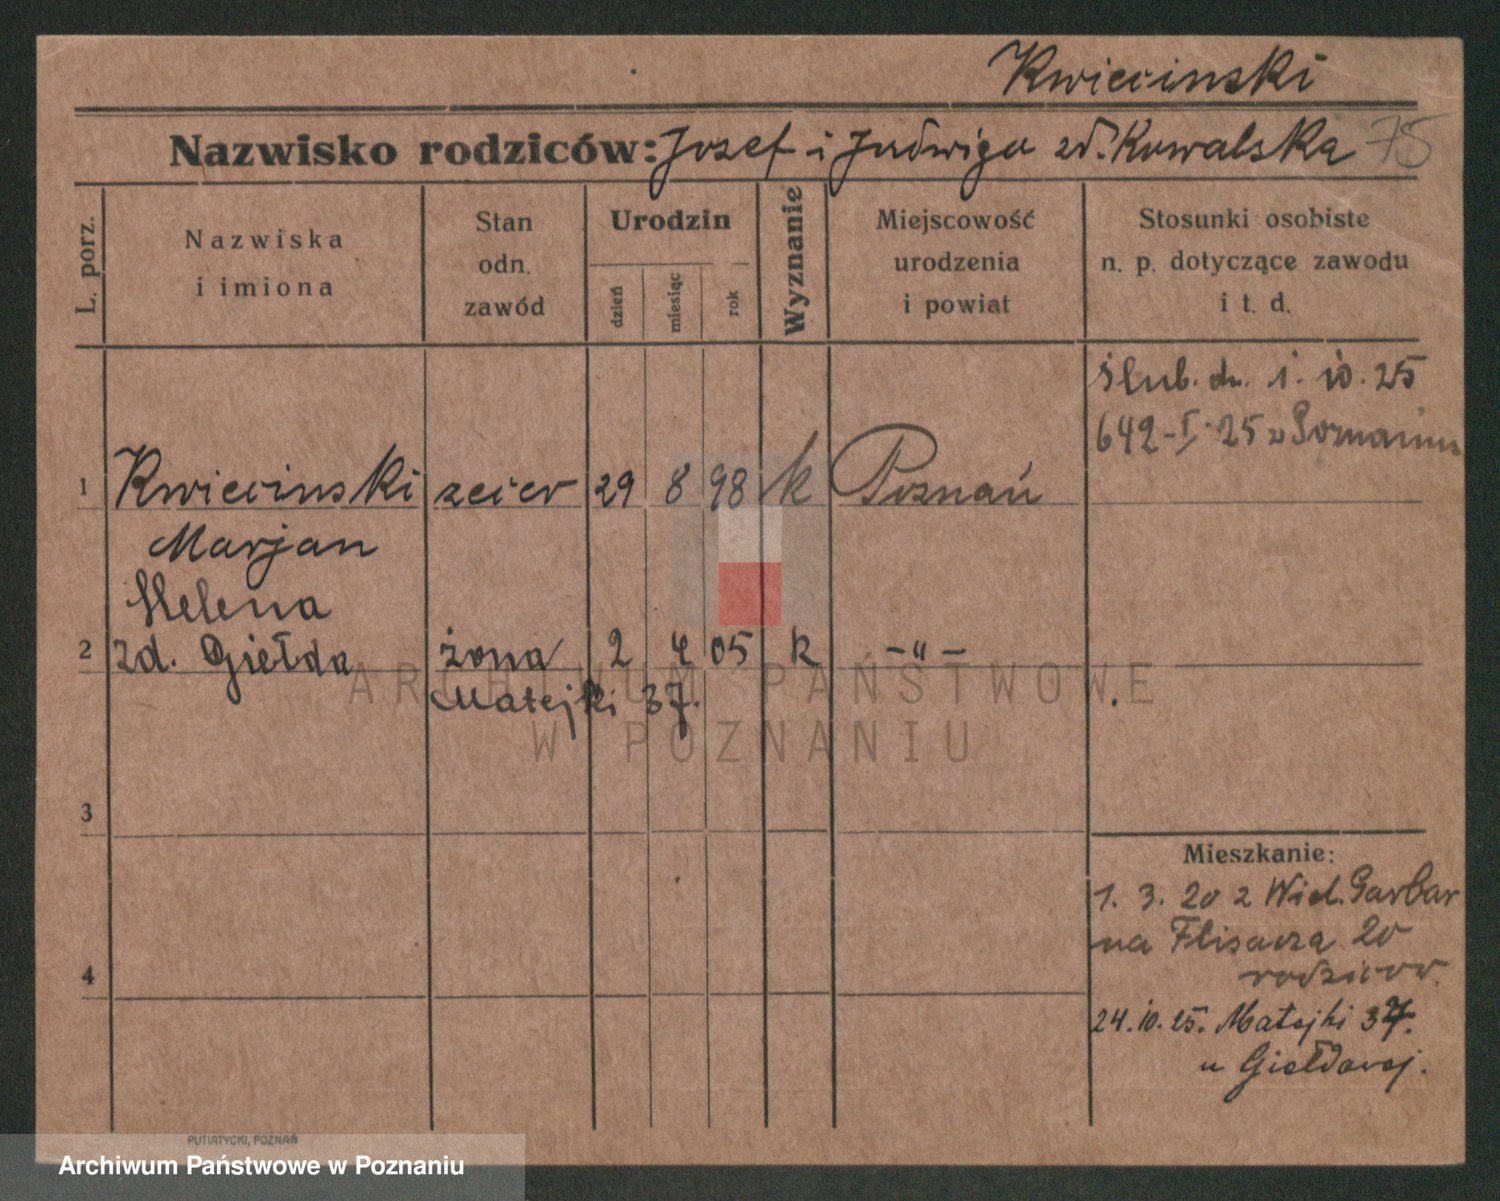 Kwiecinski
Nazwisko rodziców: Jozef i Jadwiga zd. Kowalska 75
L. porz.
Nazwiska
i imiona
Stan
odn.
zawód
Urodzin
dzień
miesiąc
rok
Wyznanie
Miejscowość
urodzenia
i powiat
Stosunki osobiste
n. p. dotyczące zawodu
i t. d.
Ślub. dn. 1. 10. 25
642-I 25 w Poznaniu
1 Kwiecinski zecer 29 8 98 k Poznań
Marjan
Helena
2 zd. Giełda żona 2 4 05 k -„-
Matejki 37.
ARCHIWUM PAŃSTWOWE
W POZNANIU
3
4
Mieszkanie:
1. 3. 20 z Wiel. Garbar
na Flisacza 20
rodziców.
24. 10. 25. Matejki 37.
u Giełdowej.
PUTIATYCKI, POZNAŃ
Archiwum Państwowe w Poznaniu